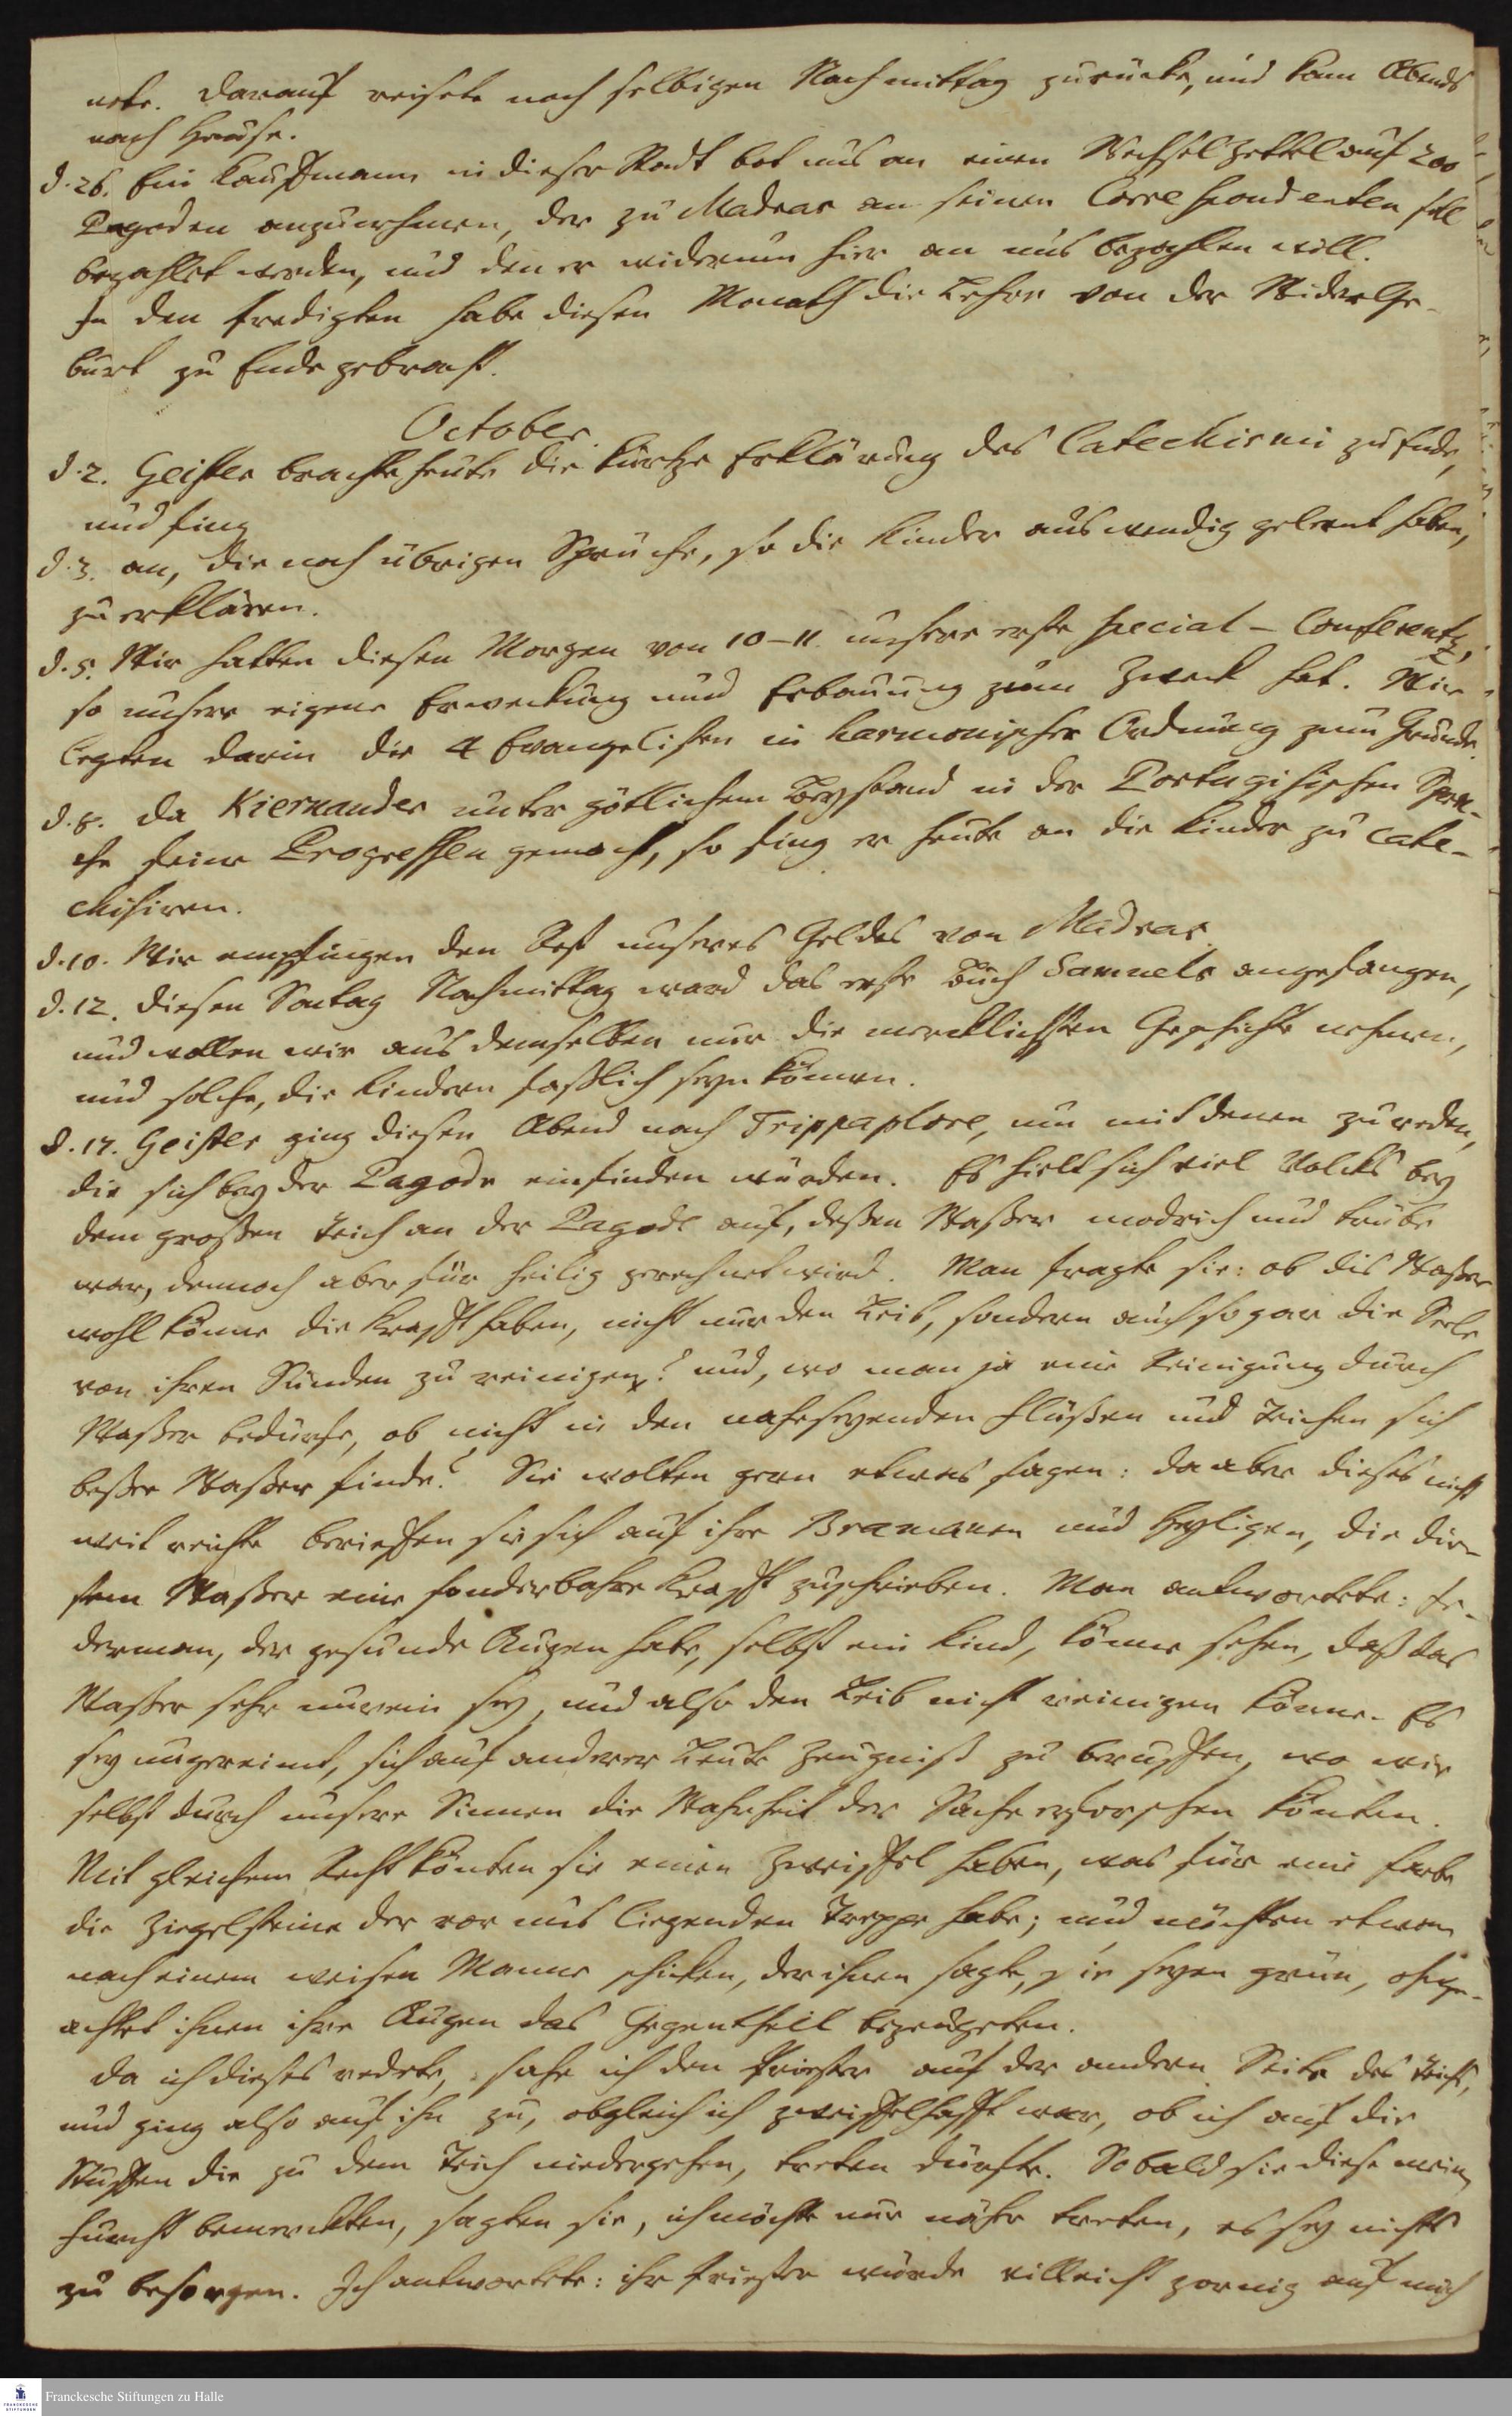 nete. Darauf reisete noch selbigen Nachmittag zurücke, und kam Abends
nach Hause.
d. 26. Ein Kauffmann in dieser Stadt bot uns an einen Wechselzettel auf 200
Pagoden anzunehmen, der zu Madras an seinen Correspondenten soll
bezahlet werden, und den er widerum hier an uns bezahlen will.
In den Predigten habe diesen Monath die Lehre von der WiderGe-
burt zu Ende gebracht.
October.
d. 2. Geister brachte heute die kurtze Erklärung des Catechismi zu Ende,
und fing
d. 3. an, die noch übrigen Sprüche, so die Kinder auswendig gelernt haben,
zu erklären.
d. 5. Wir hatten diesen Morgen von 10-11 unsere erste Special-Conferentz,
so unsere eigene Erweckung und Erbauung zum Zweck hat. Wir
legten darin die 4 Evangelisten in harmonischer Ordnung zum Grunde.
d. 8. Da Kiernander unter göttlichem Beystand in der Portugisischen Spra-
che seine Progressen gemacht, so fing er heute an die Kinder zu cate-
chisiren.
d. 10. Wir empfingen den Rest unseres Geldes von Madras.
d. 12. Diesen Sontag Nachmittag ward das erste Buch Samuels angefangen,
und wollen wir aus demselben nur die mercklichsten Geschichte nehmen,
und solche, die Kindern faßlich seyn können.
d. 17. Geister ging diesen Abend nach Trippaplore, um mit denen zu reden,
die sich bey der Pagode einfinden würden. Es hielt sich viel Volcks bey
dem grossen Teich an der Pagode auf, deßen Waßer modrich und trübe
war, dennoch aber für heilig gerechnet wird. Man fragte sie: ob dis Waßer
wohl könne die Krafft haben, nicht nur den Leib, sondern auch sogar die Seele
von ihren Sünden zu reinigen? und, wo man ja eine Reinigung durch
Waßer bedürfe, ob nicht in den naheseyenden Flüßen und Teichen sich
beßer Waßer finde? Sie wolten gern etwas sagen: da aber dieses nicht
weit reichte berieffen sie sich auf ihre Bramanen und Heyligen, die die-
sem Waßer eine sonderbahre Krafft zuschrieben. Man antwortete: Je-
derman, der gesunde Augen habe, selbst ein Kind, könne sehen, daß das
Waßer sehr unrein sey, und also den Leib nicht reinigen könne. Es
sey ungereimt, sich auf anderer Leute Zeugniß zu beruffen, wo wir
selbst durch unsere Sinnen die Wahrheit der Sache erforschen könten.
Mit gleichem Recht könten sie einen Zweiffel haben, was für eine Farbe
die Ziegelsteine der vor uns liegenden Treppe habe; und möchten etwan
nach einem weisen Manne schicken, der ihnen sagte, sie seyen grün, ohnge-
achtet ihnen ihre Augen das Gegentheil bezeugeten.
Da ich dieses redete, sahe ich den Priester auf der andern Seite des Teichs,
und ging also auf ihn zu, obgleich ich zweiffelhafft war, ob ich auf die
Stuffen die zu dem Teich niedergehen, treten dürfte. Sobald sie diese meine
Furcht bemerckten, sagten sie, ich möchte nur näher treten, es sey nichts
zu besorgen. Ich antwortete: ihr Priester würde villeicht zornig auf mich
Franckesche Stiftungen zu Halle